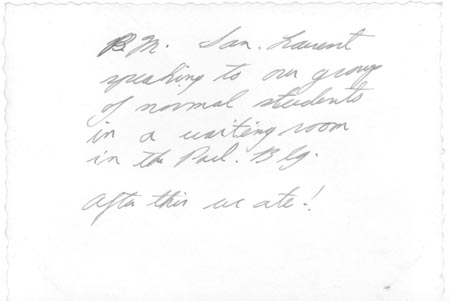 P.M. San. Laurent
speaking to our group
of normal students
in a waiting room
in the Parl. Blg.
After this we ate!